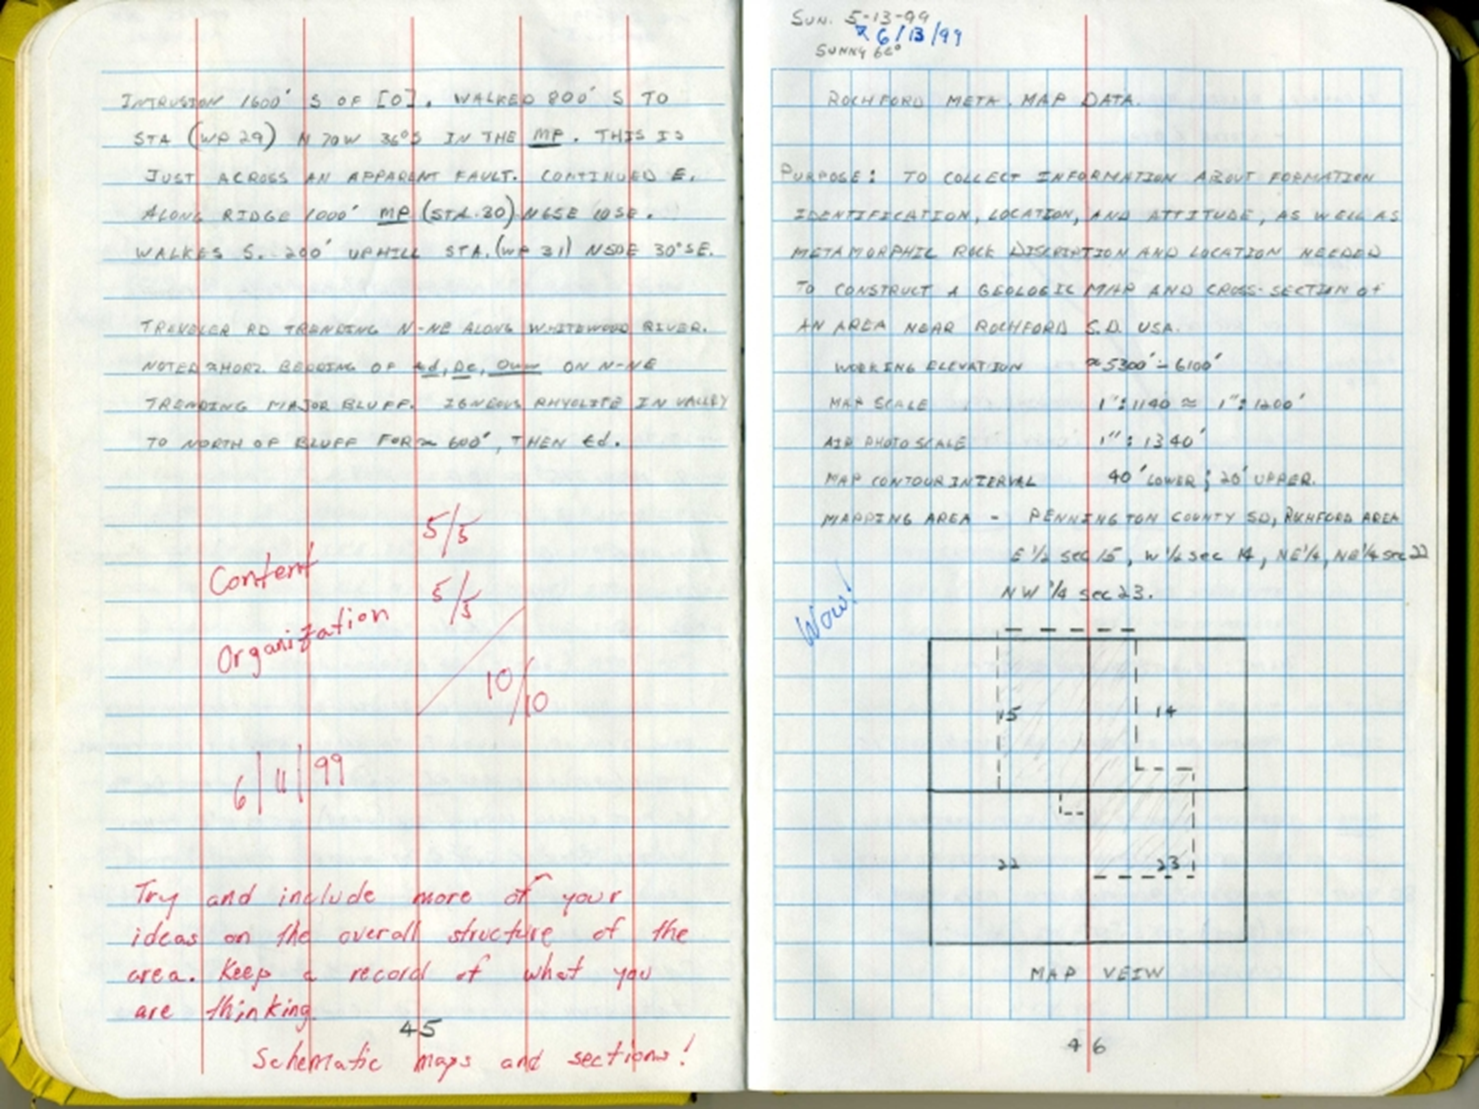 INTRUSION 1600' S OF [O]. WALKED 800' S TO
STA (WP 29) N 70W 36°S IN THE MP. THIS IS
JUST ACROSS AN APPARENT FAULT. CONTINUED E.
ALONG RIDGE 1000' MP (STA.30) N65E 10SE.
WALKES S. 200' UPHILL STA. (WP 31) N50E 30°SE.
TRENDING N-NE ALONG WHITEWOOD RIVER.
NOTED ≈HORZ. BEDDING OF €d, Oe, Oww ON N-NE
TRENDING MAJOR BLUFF. IGNEOUS RHYOLITE IN VALLEY
TO NORTH OF BLUFF FOR ≈ 600', THEN €d.
Content 5/5
Organization 5/5
10/10
6/11/99
Try and include more of your
ideas on the overall structure of the
area. Keep a record of what you
are thinking.
45
Schematic maps and sections!
SUN. 5-13-99
6/13/99
SUNNY 60°
ROCHFORD META. MAP DATA.
PURPOSE: TO COLLECT INFORMATION ABOUT FORMATION
IDENTIFICATION, LOCATION, AND ATTITUDE, AS WELL AS
METAMORPHIC ROCK DISCRIPTION AND LOCATION NEEDED
TO CONSTRUCT A GEOLOGIC MAP AND CROSS-SECTION OF
AN AREA NEAR ROCHFORD S.D. USA.
WORKING ELEVATION ≈5300'-6100'
MAP SCALE 1":1140 ≈ 1":1200'
AIR PHOTO SCALE 1":1340'
MAP CONTOUR INTERVAL 40' LOWER; 20' UPPER.
MAPPING AREA - PENNINGTON COUNTY SD, ROCHFORD AREA
E 1/2 sec 15, W 1/2 sec 14, NE 1/4, NE 1/4 sec 22
NW 1/4 sec 23.
Wow!
15 14
22 23
MAP VEIW
46